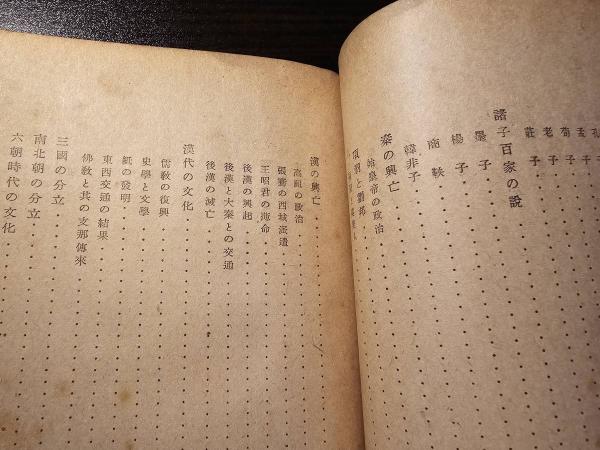 孔
孟子
荀子
老子
莊子
諸子百家の説
墨子
楊子
商鞅
韓非子
秦の興亡
始皇帝の政治
項羽と劉邦
漢の興亡
高祖の政治
張騫の西域派遣
王昭君の運命
後漢の興起
後漢と大秦との交通
後漢の滅亡
漢代の文化
儒敎の復興
史學と文學
紙の發明
東西交通の結果
佛敎と其の支那傳來
三國の分立
南北朝の分立
六朝時代の文化